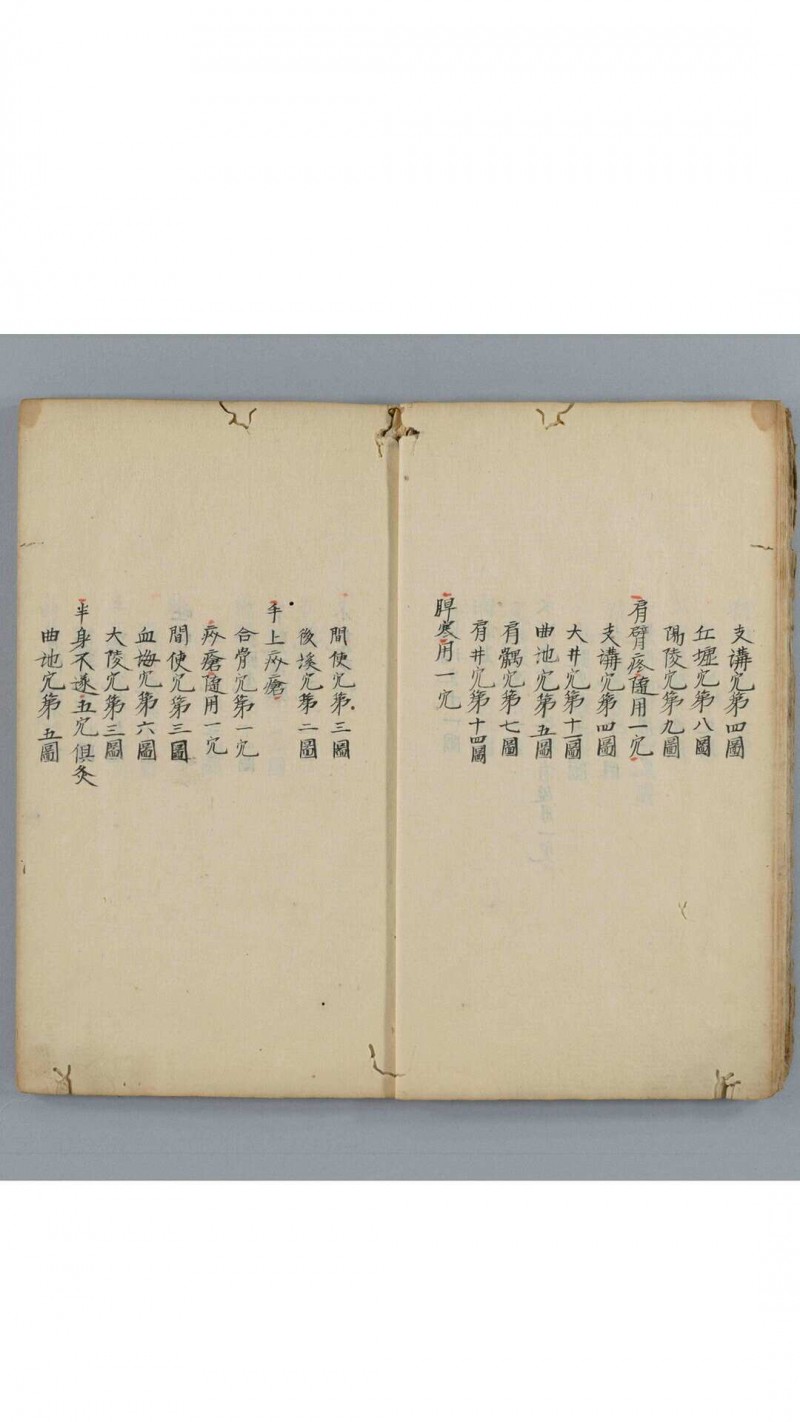 支溝穴第四圖
丘墟穴第八圖
陽陵穴第九圖
肩臂疼隨用一穴
支溝穴第四圖
大井穴第十一圖
曲池穴第五圖
肩髃穴第七圖
肩井穴第十四圖
脾寒用一穴
間使穴第三圖
後溪穴第二圖
手上疥瘡
合骨穴第一穴
疥瘡隨用一穴
間使穴第三圖
血海穴第六圖
大陵穴第三圖
半身不遂五穴俱灸
曲池穴第五圖